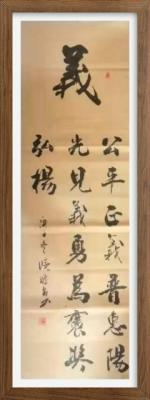 義
公平正義普惠陽
光見義勇為褒獎
弘揚